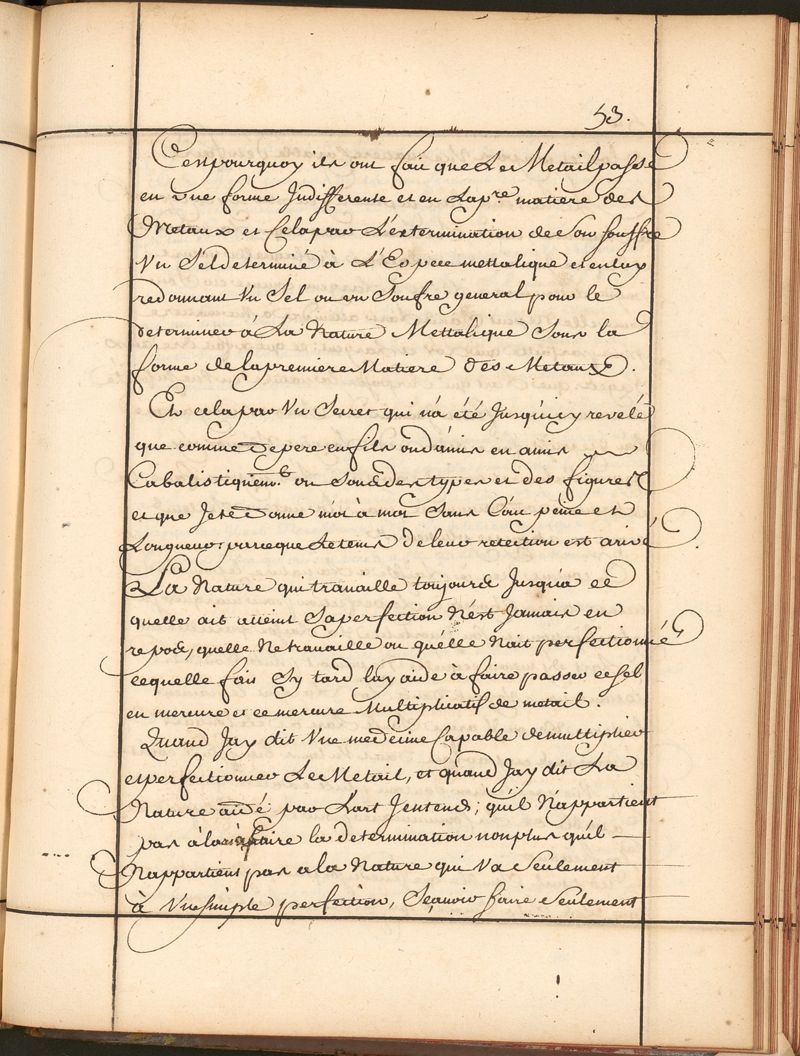 53.
C'est pourquoy ils ont fait que Le Metail passe
en une forme Indifferente et en La pre. matiere des
Metaux et Cela par L'extermination de Son souffre
Un Sel determiné à L'Espece mettalique et en luy
redonnant Un Sel ou un Soufre general pour le
determiner à La Nature Mettalique Sous la
forme de la premiere Matiere des Metaux.
Et cela par Un Secret qui n'a été Jusqu'icy revelé
que comme De pere en fils ou d'amis en amis
Cabalistiquemt. ou Sous des types et des figures
et que Je te Donne mot à mot Sans peine et
Longueur parceque Le tems de leur est arivé.
La Nature qui travaille toujours Jusqu'a ce
quelle ait atteint Sa perfection N'est Jamais en
repos, quelle Ne travaille ou qu'elle N'ait perfectionné
ce quelle fait Sy l'art luy aide à faire passer ce Sel
en mercure et ce mercure Multiplicatif de metail.
Quand Jay dit Une medecine Capable de multiplier
et perfectionner Le Metail, et quand Jay dit La
Nature aidé par L'art J'entends; qu'il N'appartient
pas à l'art à faire la determination non plus qu'il
N'appartient pas a la Nature qui Va Seulement
à Une simple perfection, Sçavoir faire Seulement